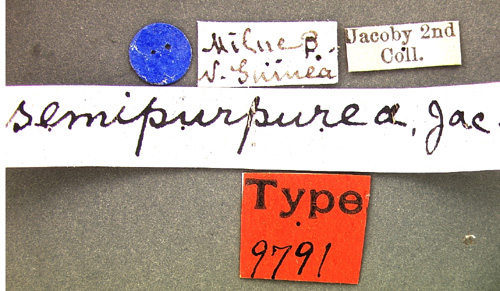 Milne B.
N. Guinea
Jacoby 2nd
Coll.
semipurpurea, Jac.
Type
9791